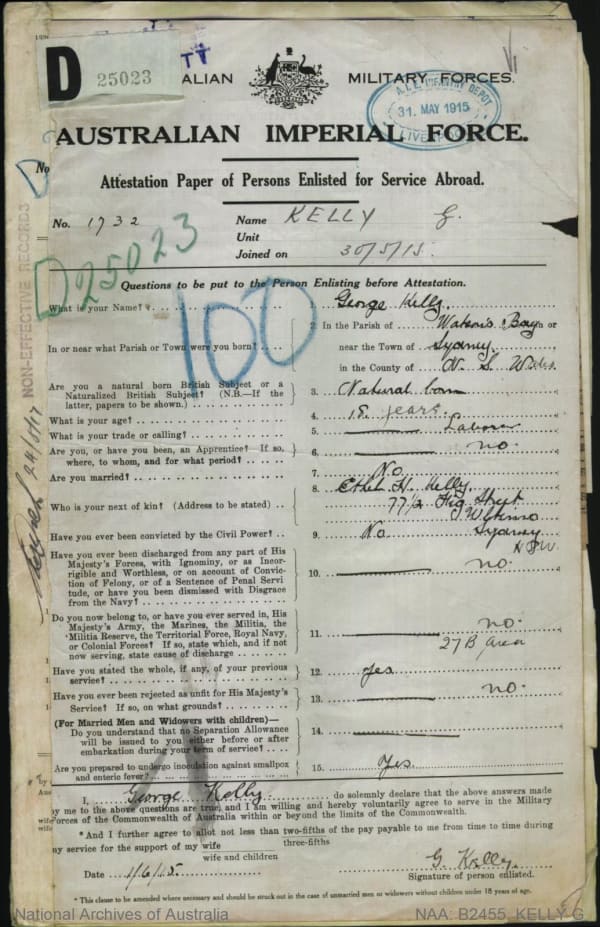 D 25023
ALIAN MILITARY FORCES.
A.I.F. INFANTRY DEPOT
31. MAY 1915
AUSTRALIAN IMPERIAL FORCE.
Attestation Paper of Persons Enlisted for Service Abroad.
No. 1732 Name KELLY G.
Unit
Joined on 30/5/15.
D25023
100
NON-EFFECTIVE RECORDS
Questions to be put to the Person Enlisting before Attestation.
What is your Name? 1. George Kelly.
In or near what Parish or Town were you born? 2. In the Parish of Watson's Bay in or
near the Town of Sydney
in the County of N. S. Wales.
Are you a natural born British Subject or a
Naturalized British Subject? (N.B.—If the
latter, papers to be shown.) 3. Natural born
What is your age? 4. 18 years
What is your trade or calling? 5. Labourer
Are you, or have you been, an Apprentice? If so,
where, to whom, and for what period? 6. no.
Are you married? 7. No
Who is your next of kin? (Address to be stated) 8. Ethel H. Kelly
77½ Fig Street
Ultimo
Sydney
NSW
Have you ever been convicted by the Civil Power? 9. No
Have you ever been discharged from any part of His
Majesty's Forces, with Ignominy, or as Incor-
rigible and Worthless, or on account of Convic-
tion of Felony, or of a Sentence of Penal Servi-
tude, or have you been dismissed with Disgrace
from the Navy? 10. no.
Do you now belong to, or have you ever served in, His
Majesty's Army, the Marines, the Militia, the
Militia Reserve, the Territorial Force, Royal Navy,
or Colonial Forces? If so, state which, and if not
now serving, state cause of discharge 11. no.
27B Area
Have you stated the whole, if any, of your previous
service? 12. Yes
Have you ever been rejected as unfit for His Majesty's
Service? If so, on what grounds? 13. no.
(For Married Men and Widowers with children)—
Do you understand that no Separation Allowance
will be issued to you either before or after
embarkation during your term of service? 14.
Are you prepared to undergo inoculation against smallpox
and enteric fever? 15. Yes
I, George Kelly do solemnly declare that the above answers made
by me to the above questions are true, and I am willing and hereby voluntarily agree to serve in the Military
Forces of the Commonwealth of Australia within or beyond the limits of the Commonwealth.
*And I further agree to allot not less than two-fifths of the pay payable to me from time to time during
three-fifths
my service for the support of my wife
wife and children
G. Kelly.
Date 1/6/15. Signature of person enlisted.
* This clause to be amended where necessary and should be struck out in the case of unmarried men or widowers without children under 18 years of age.
National Archives of Australia NAA: B2455, KELLY G